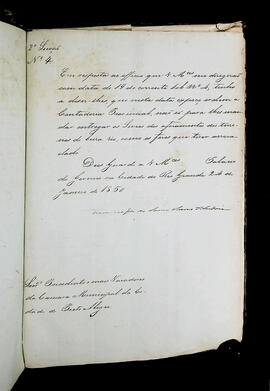 2ª Secção
Nº 4.
Em resposta ao officio que V Mces me dirigirão
com data de 19 do corrente sob Nº 4, tenho
a dizer-lhes, que nesta data expeço ordem a
Contadoria Provincial, para lhes man
dar entregar os Livros de aforamentos dos terre
nos de
Deos Guarde a V Mces Palacio
do Governo na Cidade do Rio Grande 24 de
Janeiro de 1850
Senrs Presidente e mais Vereadores
da Camara Municipal da Ci-
dade de Porto Alegre